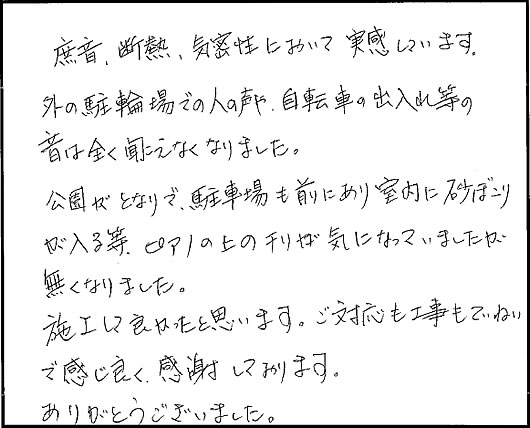 遮音、断熱、気密性において実感しています。
外の駐輪場での人の声や、自転車の出入れ等の
音は全く聞こえなくなりました。
公園がとなりで、駐車場も前にあり室内に砂ぼこり
が入る等、ピアノの上のチリが気になっていましたが
無くなりました。
施工して良かったと思います。ご対応も工事もていねい
で感じ良く、感謝しております。
ありがとうございました。